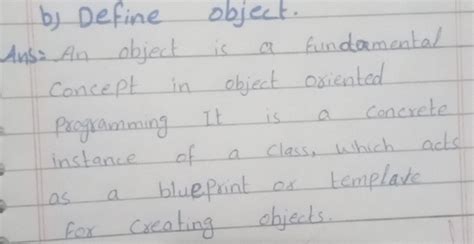 b) Define object.
Ans: An object is a fundamental
Concept in object oriented
Programming It is a concrete
instance of a class, which acts
as a blueprint or template
for creating objects.